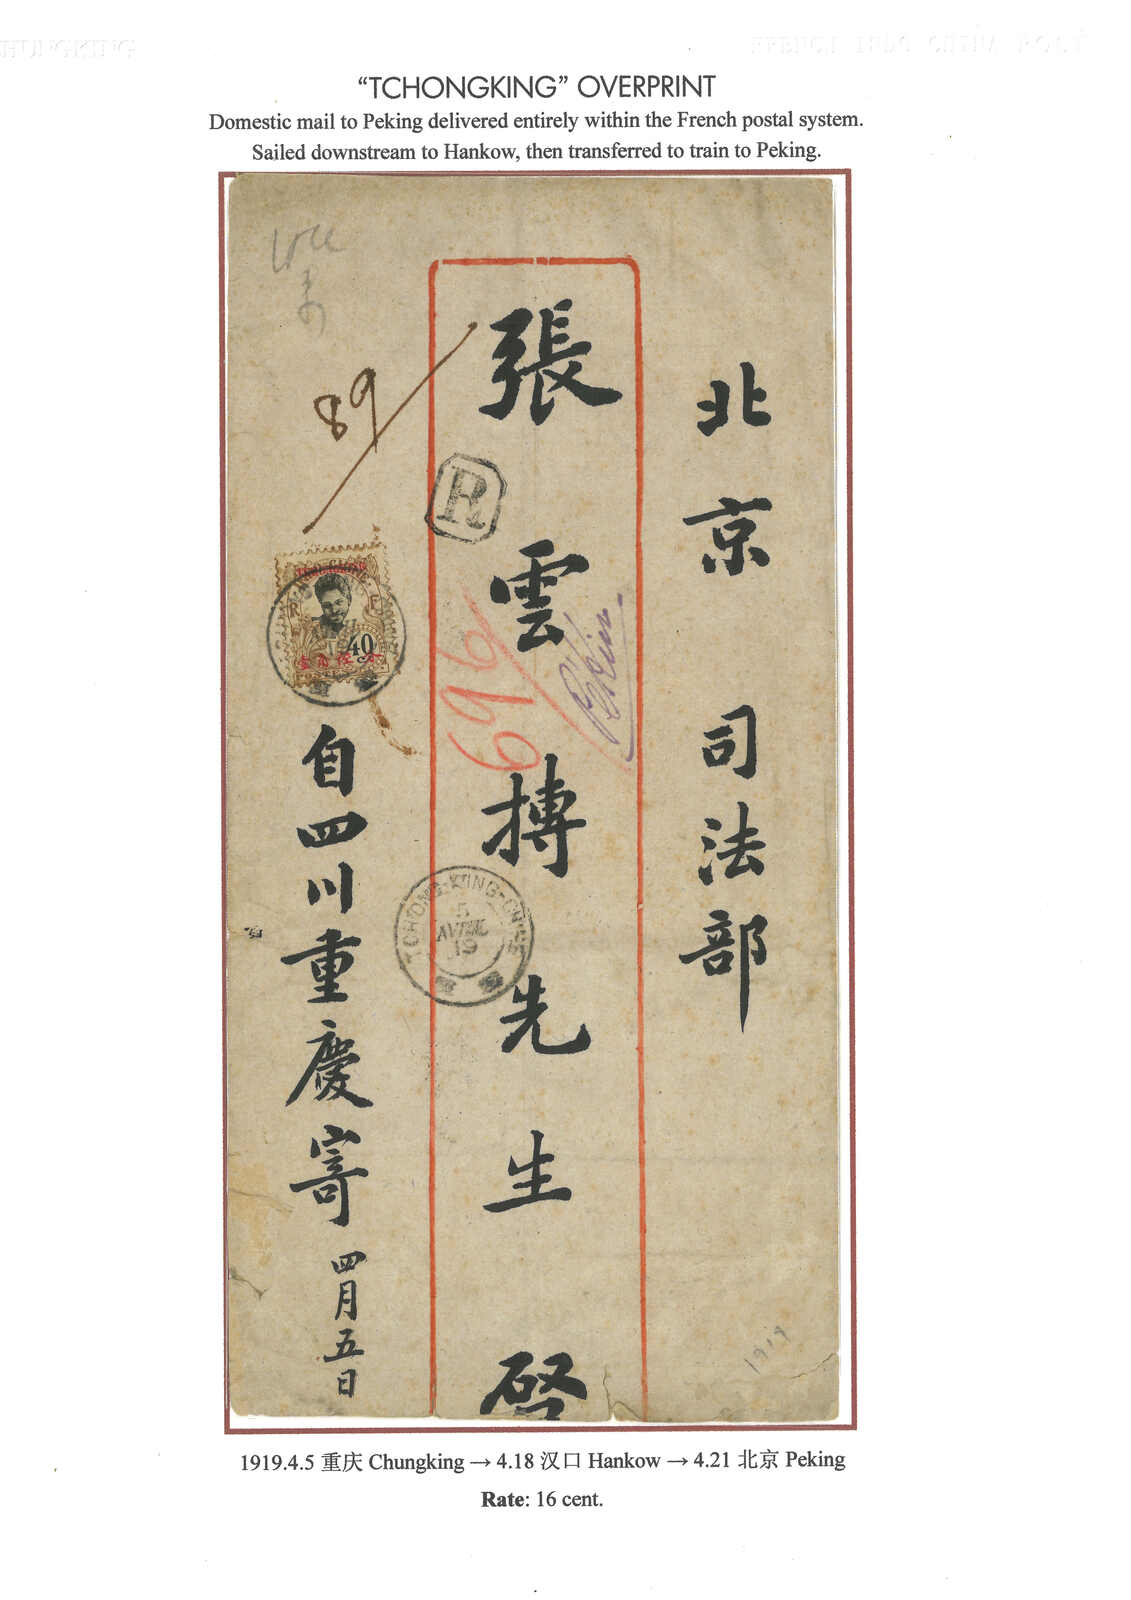 “TCHONGKING” OVERPRINT
Domestic mail to Peking delivered entirely within the French postal system.
Sailed downstream to Hankow, then transferred to train to Peking.
北京司法部
張雲摶先生啓
自四川重慶寄 四月五日
89
R
696
Pékin
40
POSTES
TCHONG-KING-CHINE
5
AVRIL
19
1919
1919.4.5 重庆 Chungking → 4.18 汉口 Hankow → 4.21 北京 Peking
Rate: 16 cent.